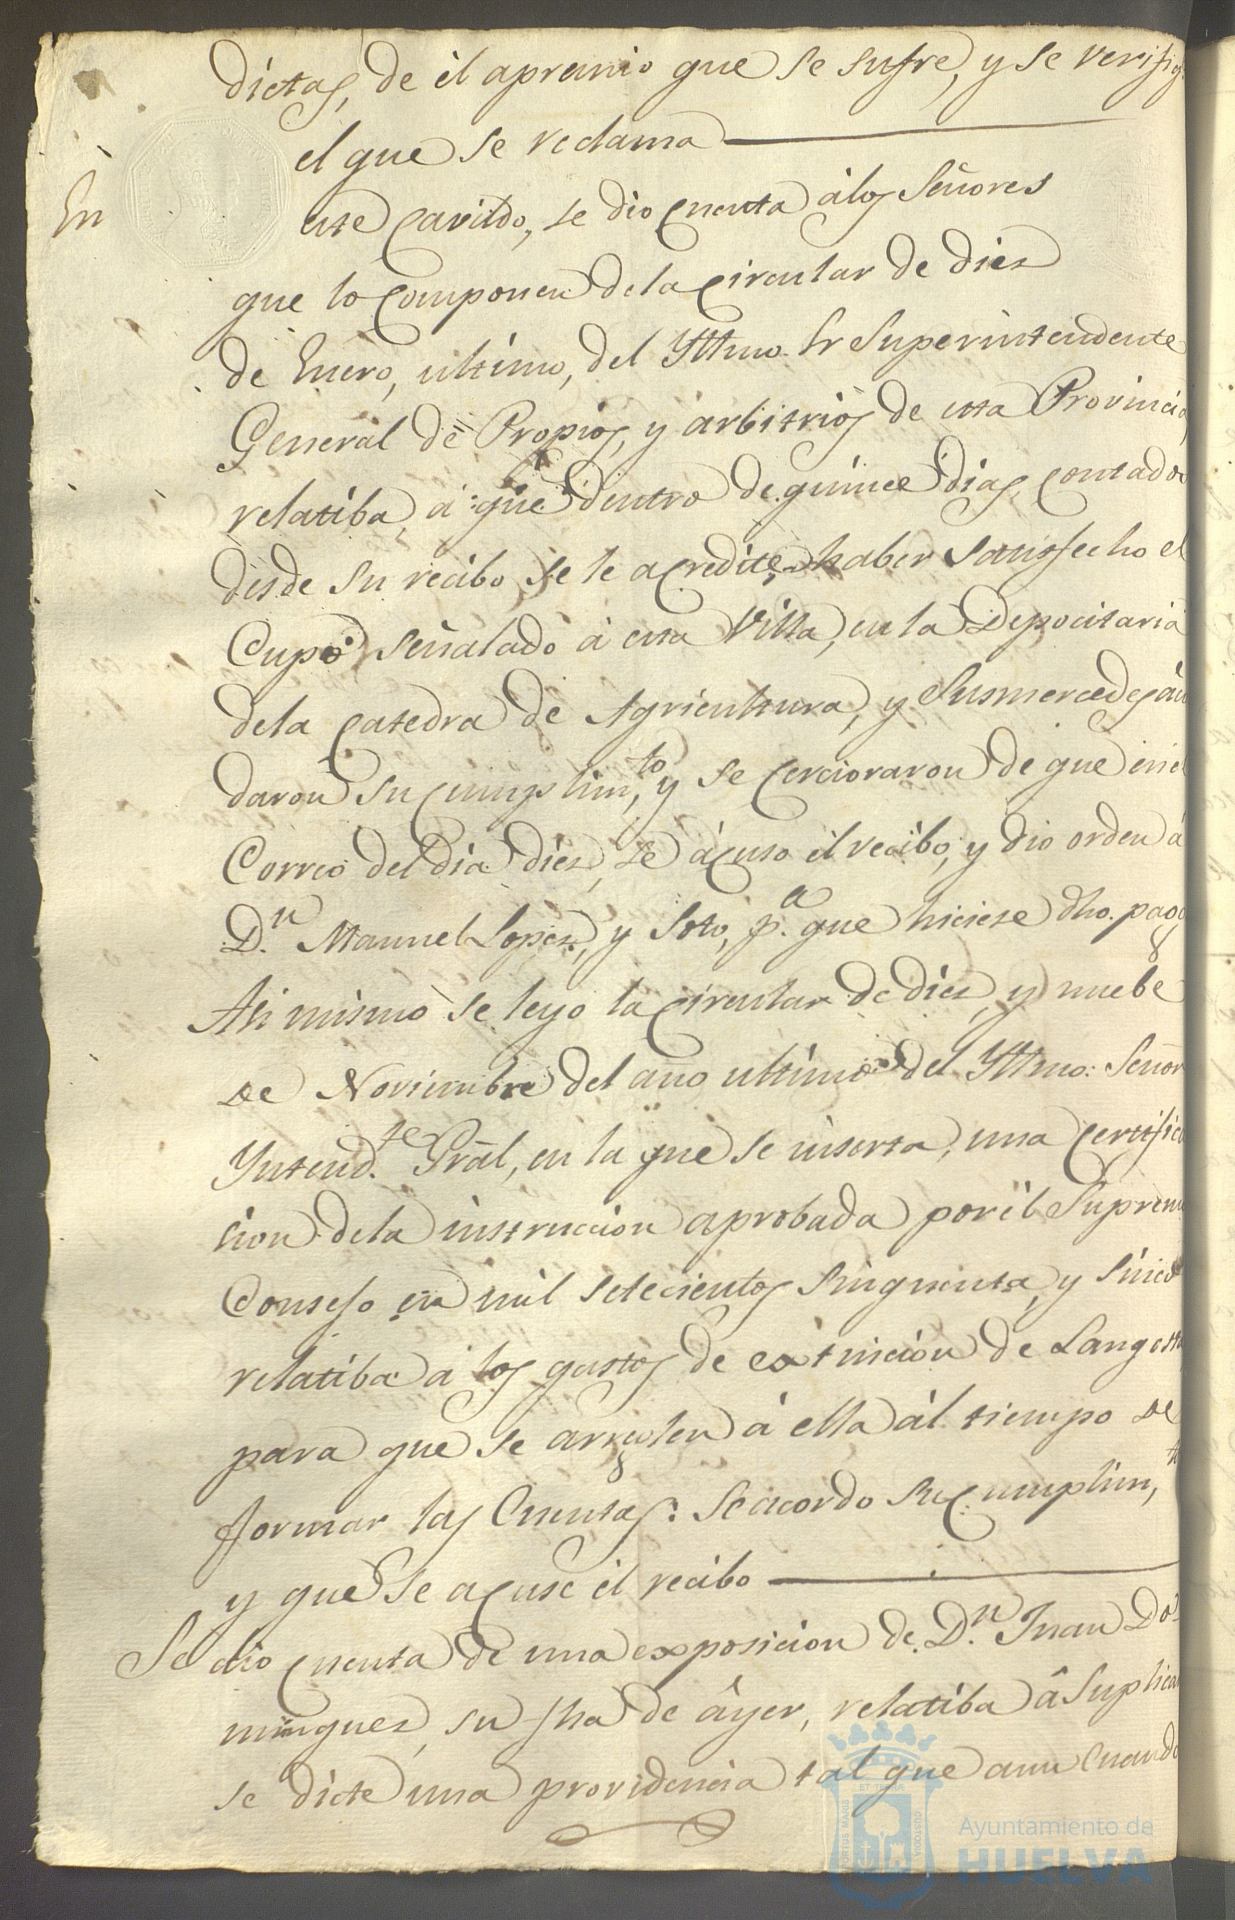 dictas, de el apremio que se sufre, y se verifiq
el que se reclama
En
este Cavildo, se dio Cuenta álos Señores
que lo Componen dela Circular de diez
de Enero, ultimo, del Yltmo. Sr Superintendente
General de Propios, y árbitrios de esta Provincia,
relatiba, á que dentro de quince dias, Contados
desde su recibo, se le acredite, haber Satisfecho el
Cupo señalado á esta Villa, en la Depocitaria
dela Catedra de Agricultura, y Susmercedes áu
daron su Cumplim,to y se Cercioraron de que enel
Correo del dia diez, se ácuso el recibo, y dio orden á
D.n Manuel Lopez, y Soto, p.a que hiciese dho. pago
Asi mismo se leyo la Circular de diez, y nuebe
de Noviembre del ano ultimo del Yltmo: Señor
Yntend.te Grãl, en la que se inserta, una Certifica
cion dela instruccion aprobada por él Supremo
Consejo en mil setecientos Sinquenta, y Sinco
relatiba á los gastos de extincion de Langosta
para que se arreglen á ella ál tiempo de
formar las Cuentas: Se acordo su Cumplim,to
y que se acuse el recibo
Se dio Cuenta de una exposicion de D.n Juan Do
minguez, su fha de áyer, relatiba â Suplicar
se dicte una providencia tal que aun Cuando
PORTUS MARIS
ET TERRÆ
CUSTODIA
Ayuntamiento de
HUELVA